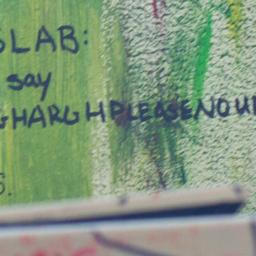 SLAB:
say
GHARGHPLEASENOU
S.